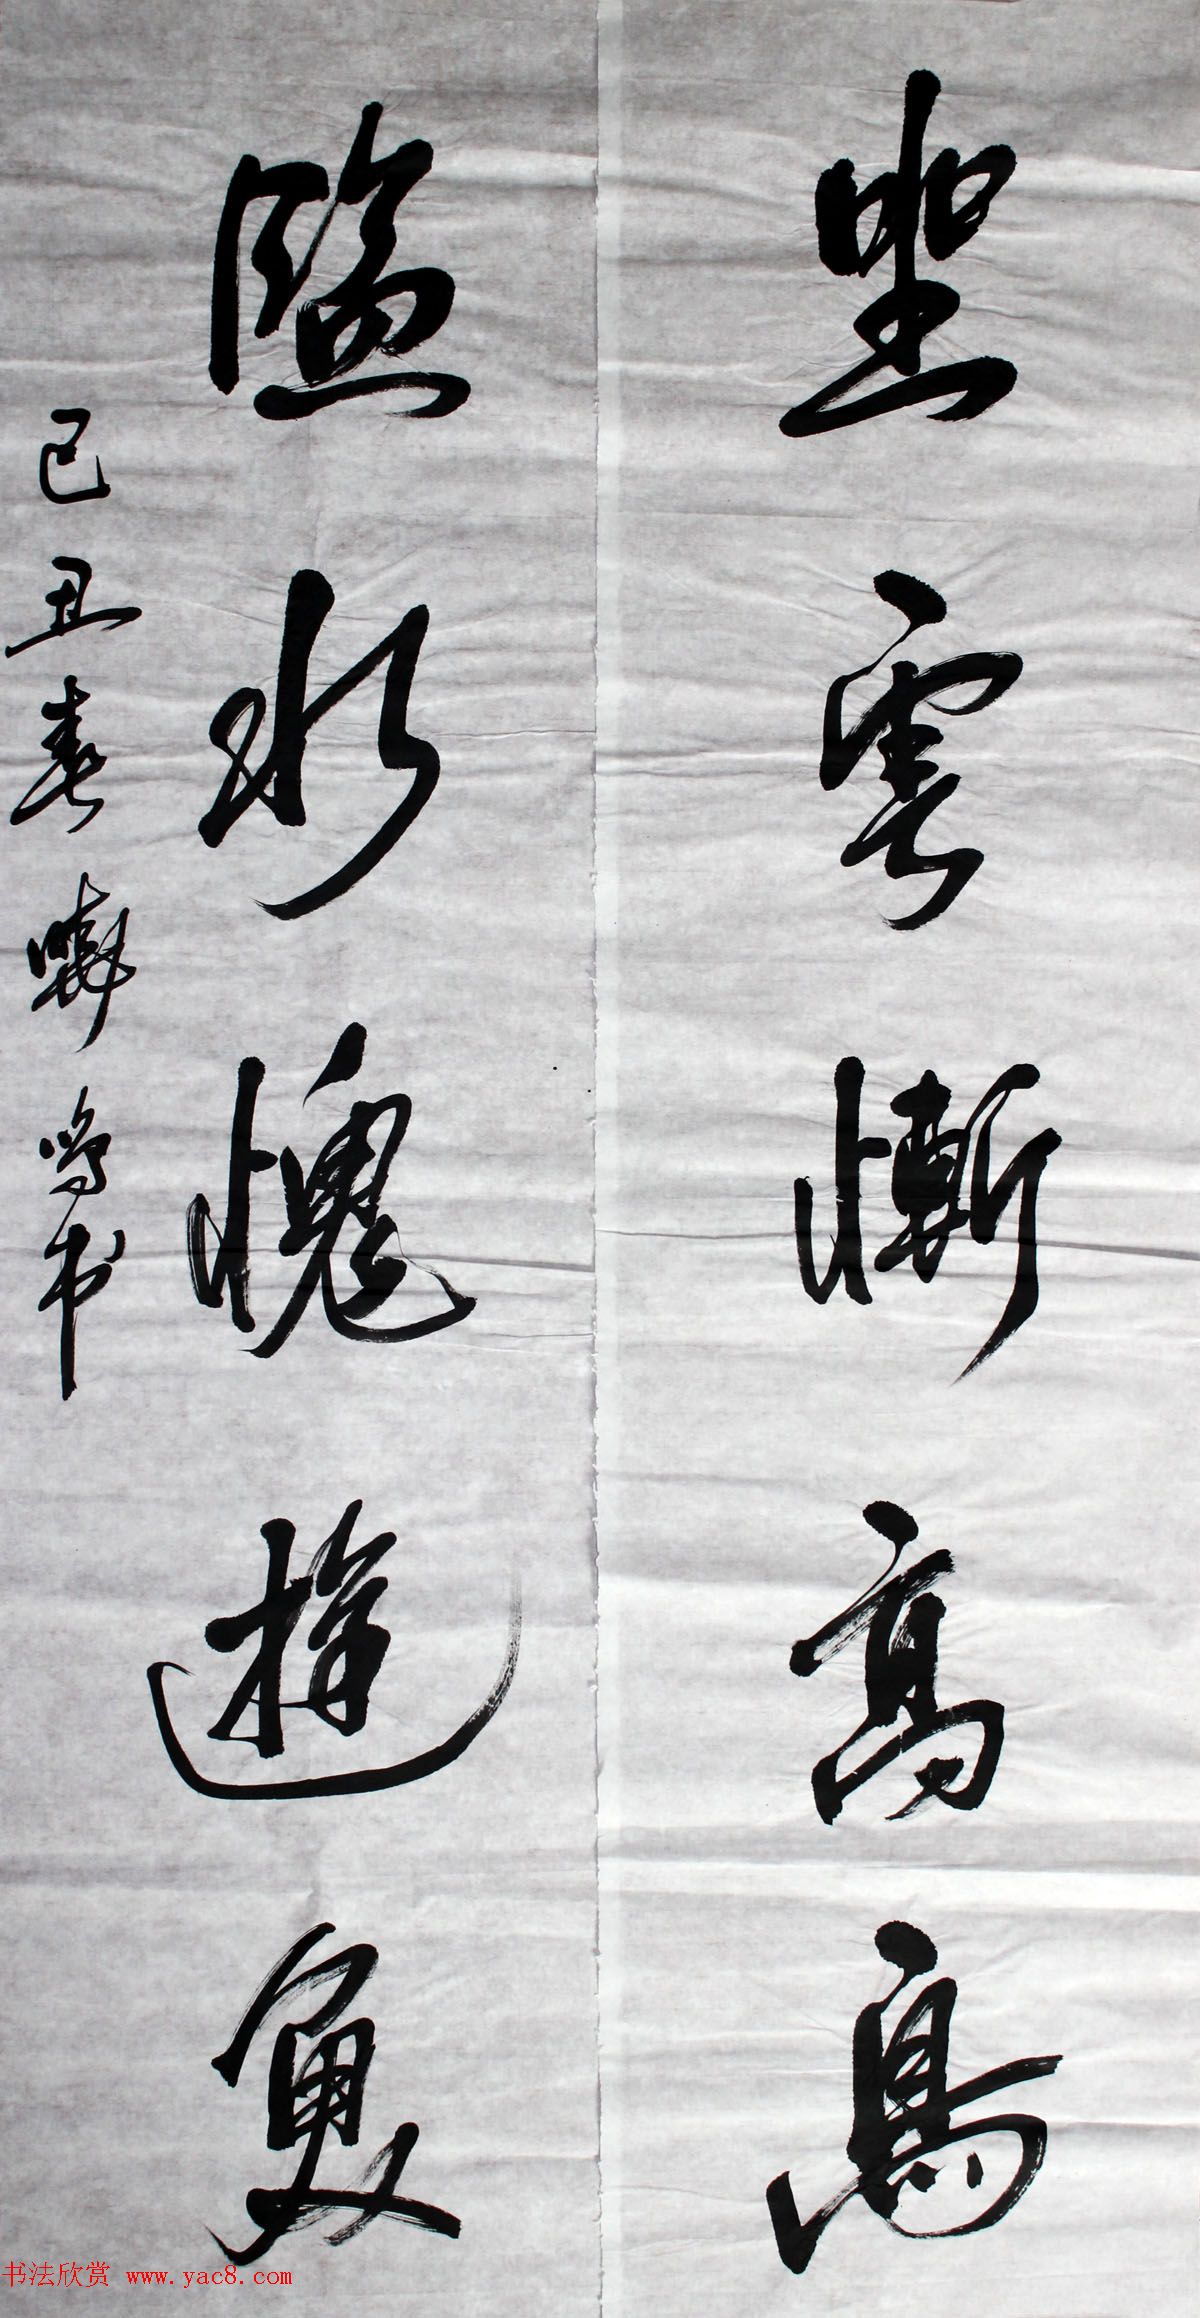 望雲慚高鳥
臨水愧遊魚
己丑春鸣书
书法欣赏 www.yac8.com